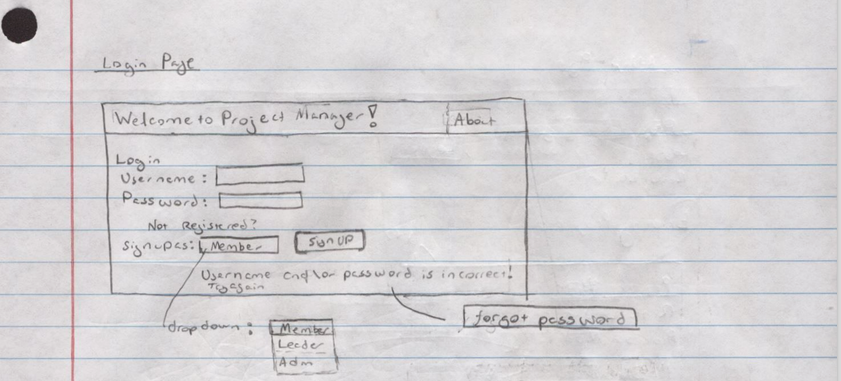 Login Page
Welcome to Project Manager! About
Login
Username:
Password:
Not Registered?
Sign up as: Member Sign UP
Username and/or password is incorrect!
Try again
forgot password
drop down: Member
Leader
Adm